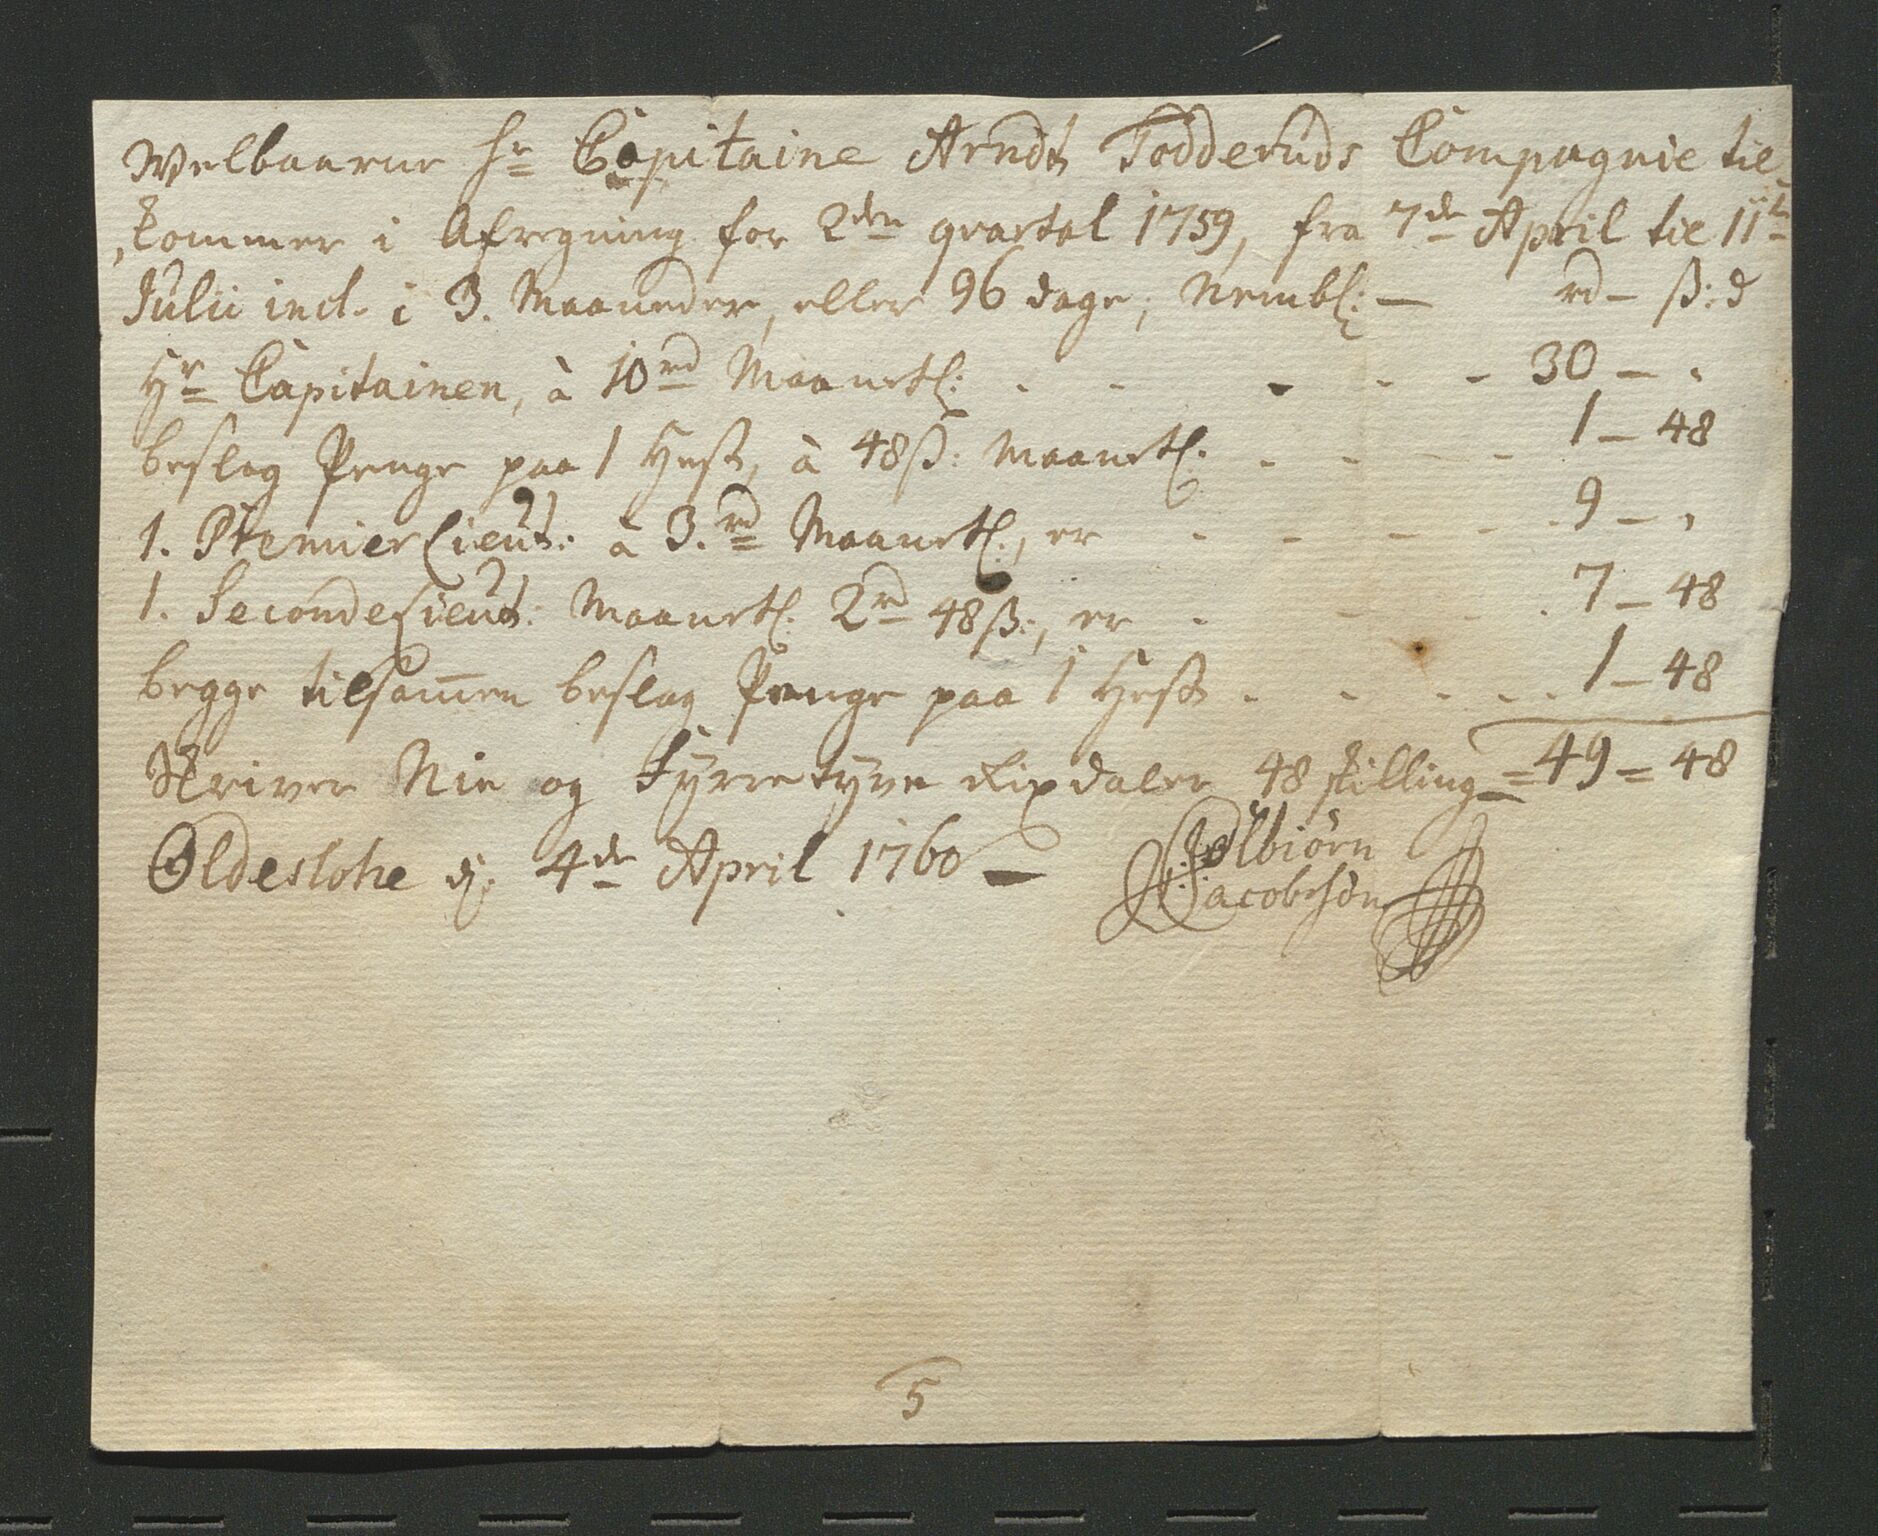 Welbaarne Hr Capitaine Arndt Todderuds Compagnie til-
kommer i Afregning for 2den qvartal 1759, fra 7de April til 11te
Julii incl. i 3. Maaneder, eller 96 dage, Nembl: — rd — ß: d
Hr Capitainen, à 10rd Maanetl: - - - - - 30 — „
beslag Penge paa 1 Hest, à 48ß: Maanetl: - - - - 1 — 48
1. Premier Lieut: à 3.rd Maanetl:, er - - - - - 9 — „
1. Seconde Lieut: Maanetl: 2rd 48ß:, er - - - - 7 — 48
begge tilsam̅en beslag Penge paa 1 Hest - - - - - 1 — 48
Skriver Nie og Fyrretyve Rixdaler 48 skilling = 49 = 48
Oldeslohe d: 4de April 1760 —
Colbiörn
Jacobsön
5